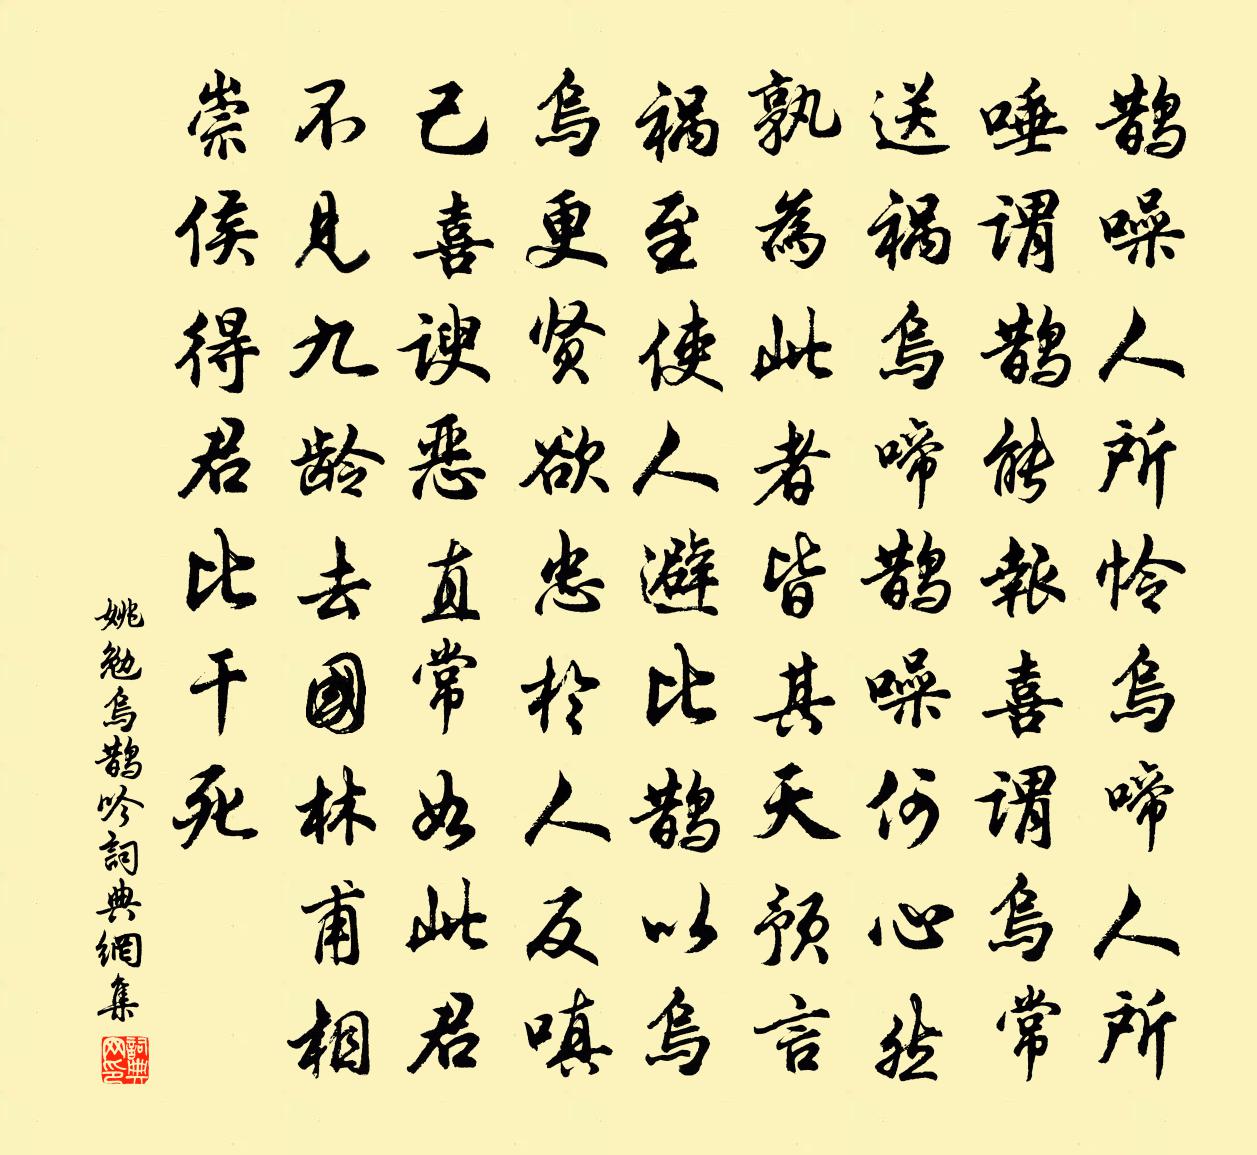 鹊噪人所怜乌啼人所
唾谓鹊能報喜谓乌常
送祸乌啼鹊噪何心然
孰為此者皆其天预言
祸至使人避比鹊以乌
乌更贤欲忠於人反嗔
己喜谀恶直常如此君
不见九龄去國林甫相
崇侯得君比干死
姚勉乌鹊吟詞典網集
詞典网印